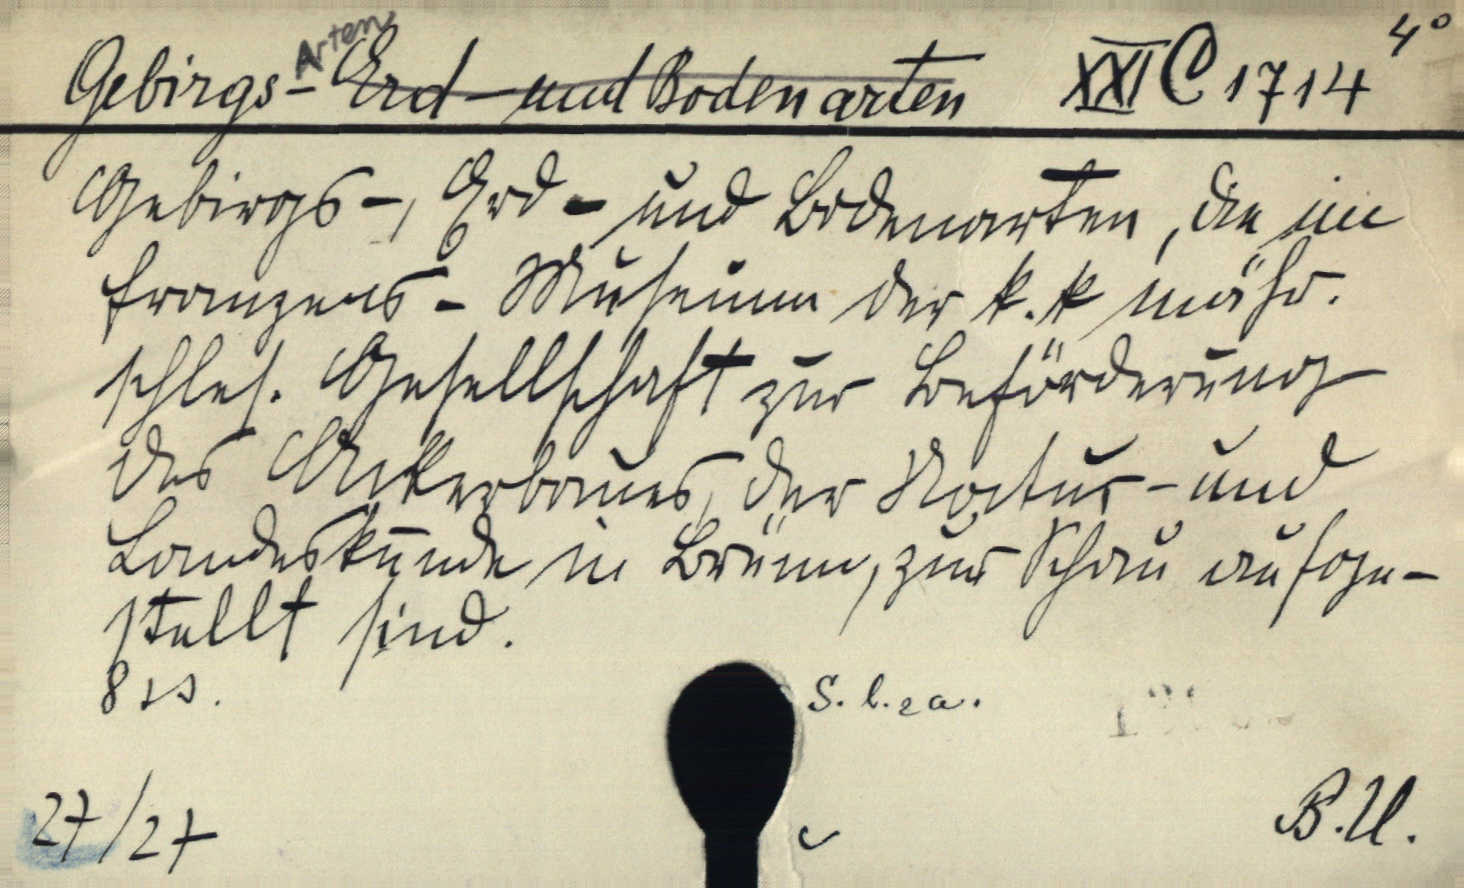 Gebirgs-Arten Erd- und Bodenarten XXI C 1714 4°
Gebirgs-, Erd- und Bodenarten, die im
Franzens-Museum der k.k mähr.
schles. Gesellschaft zur Beförderung
des Ackerbaues, der Natur- und
Landeskunde in Brünn, zur Schau aufge-
stellt sind.
8 ss. S. l. e a.
27/27 B.U.